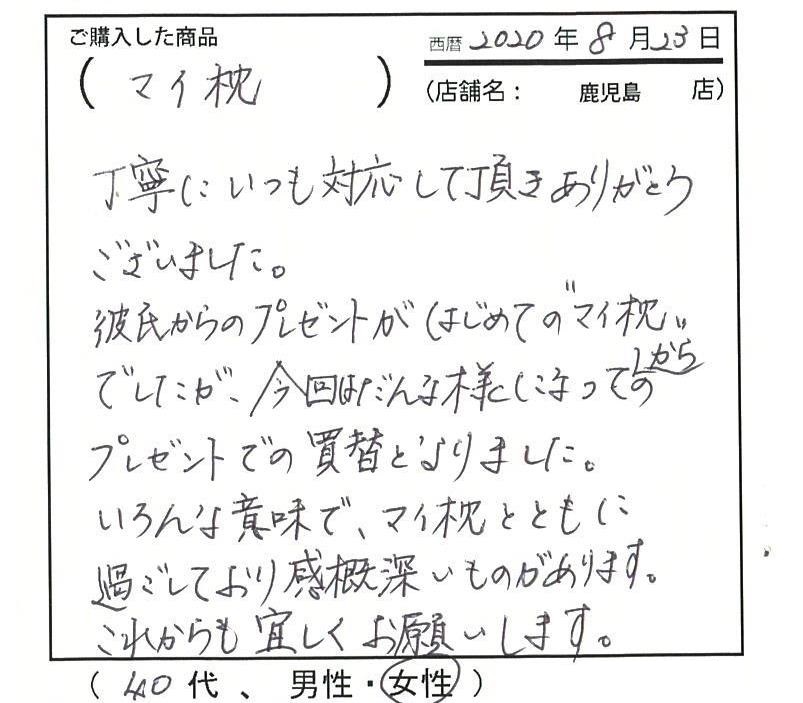 ご購入した商品
西暦 2020 年 8 月 23 日
( マイ枕 )
(店舗名: 鹿児島 店)
丁寧にいつも対応して頂きありがとう
ございました。
彼氏からのプレゼントがはじめての"マイ枕"
でしたが、今回はだんな様になってからの
プレゼントでの買替となりました。
いろんな意味で、マイ枕とともに
過ごしており感慨深いものがあります。
これからも宜しくお願いします。
( 40 代 、 男性・女性 )